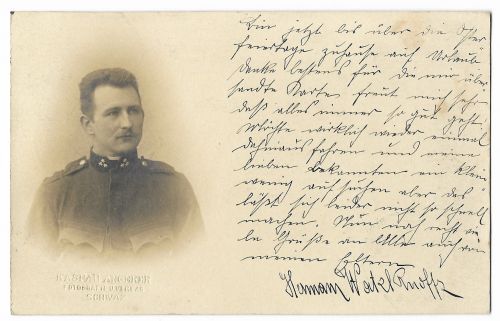 Bin jetzt bis über die Oster
feiertage zuhause auf Urlaub
danke bestens für die mir über
sandte Karte freut mich sehr
daß alles immer so gut geht
Möchte wirklich wieder einmal
dahinaus fahren und meine
lieben Bekannten ein klein
wenig aufsuchen aber das
läßt sich leider nicht so schnell
machen. Nun noch recht vie
le Grüße an Alle auch von
meinen Eltern
KASPAR ANGERER
FOTOGRAF U. VERLAG
SCHWAZ